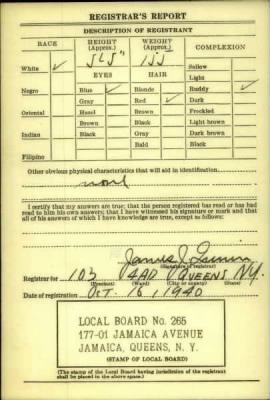 REGISTRAR'S REPORT
DESCRIPTION OF REGISTRANT
RACE HEIGHT (Approx.) WEIGHT (Approx.) COMPLEXION
White ✓ 5'5" 155 Sallow
EYES HAIR Light
Negro Blue ✓ Blonde Ruddy ✓
Gray Red ✓ Dark
Oriental Hazel Brown Freckled
Brown Black Light brown
Indian Black Gray Dark brown
Bald Black
Filipino
Other obvious physical characteristics that will aid in identification
none
I certify that my answers are true; that the person registered has read or has had
read to him his own answers; that I have witnessed his signature or mark and that
all of his answers of which I have knowledge are true, except as follows:
James J.
(Signature of registrar)
Registrar for 103 4AD QUEENS N.Y.
(Precinct) (Ward) (City or county) (State)
Date of registration OCT. 16, 1940
LOCAL BOARD No. 265
177-01 JAMAICA AVENUE
JAMAICA, QUEENS, N. Y.
(STAMP OF LOCAL BOARD)
(The stamp of the Local Board having jurisdiction of the registrant
shall be placed in the above space.)